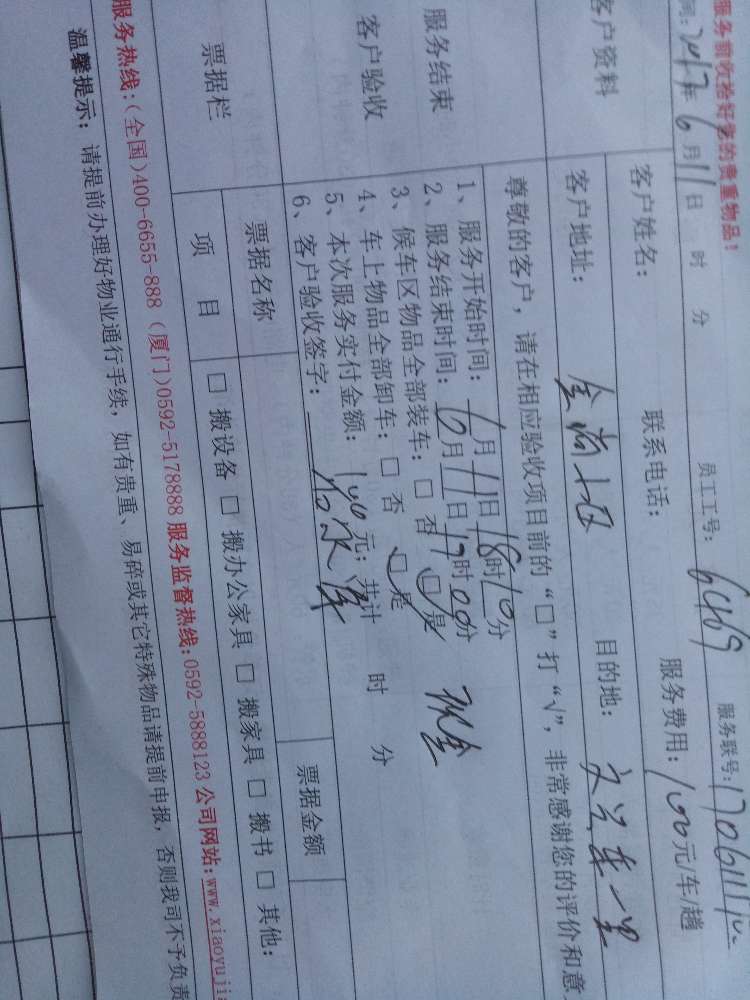 服务前收拾好您的贵重物品！
间：2017年6月11日 时 分 员工工号：6469 服务联号：170611110
客户资料 客户姓名： 联系电话： 服务费用：100元/车/趟
客户地址： 金尚小区 目的地： 文兴东一里
尊敬的客户，请在相应验收项目前的“□”打“√”，非常感谢您的评价和意
服务结束
客户验收
1、服务开始时间：6月11日18时10分
2、服务结束时间：6月11日19时00分 现金
3、候车区物品全部装车：□ 否 □ 是
4、车上物品全部卸车：□ 否 □ 是
5、本次服务实付金额：100元；共计 时 分
6、客户验收签字：
票据栏 票据名称 票据金额
项 目 □ 搬设备 □ 搬办公家具 □ 搬家具 □ 搬书 □ 其他：
服务热线：(全国)400-6655-888 (厦门)0592-5178888 服务监督热线：0592-5888123 公司网站：www.xiaoyuji
温馨提示：请提前办理好物业通行手续，如有贵重、易碎或其它特殊物品请提前申报，否则我司不予负责